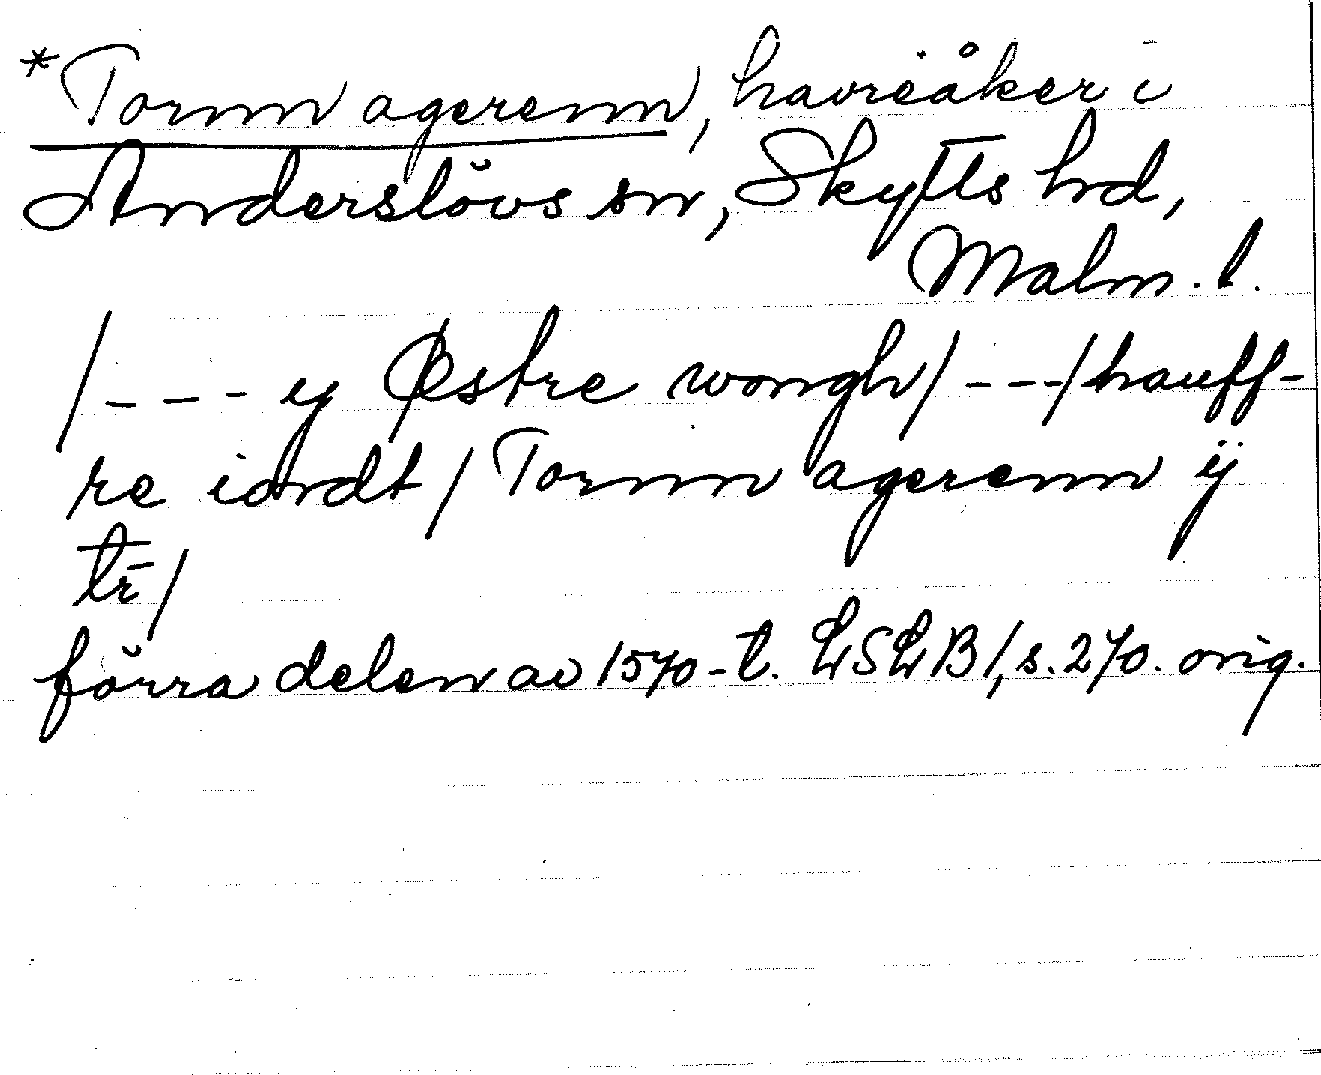 *Tornn agerenn, havreåker i
Anderslövs sn, Skytts hd,
Malm. l.
/--- y Østre wongh/---/hauff-
re iordt/Tornn agerenn ij
tr/
förra delen av 1570-t. LSLB1, s. 270. orig.